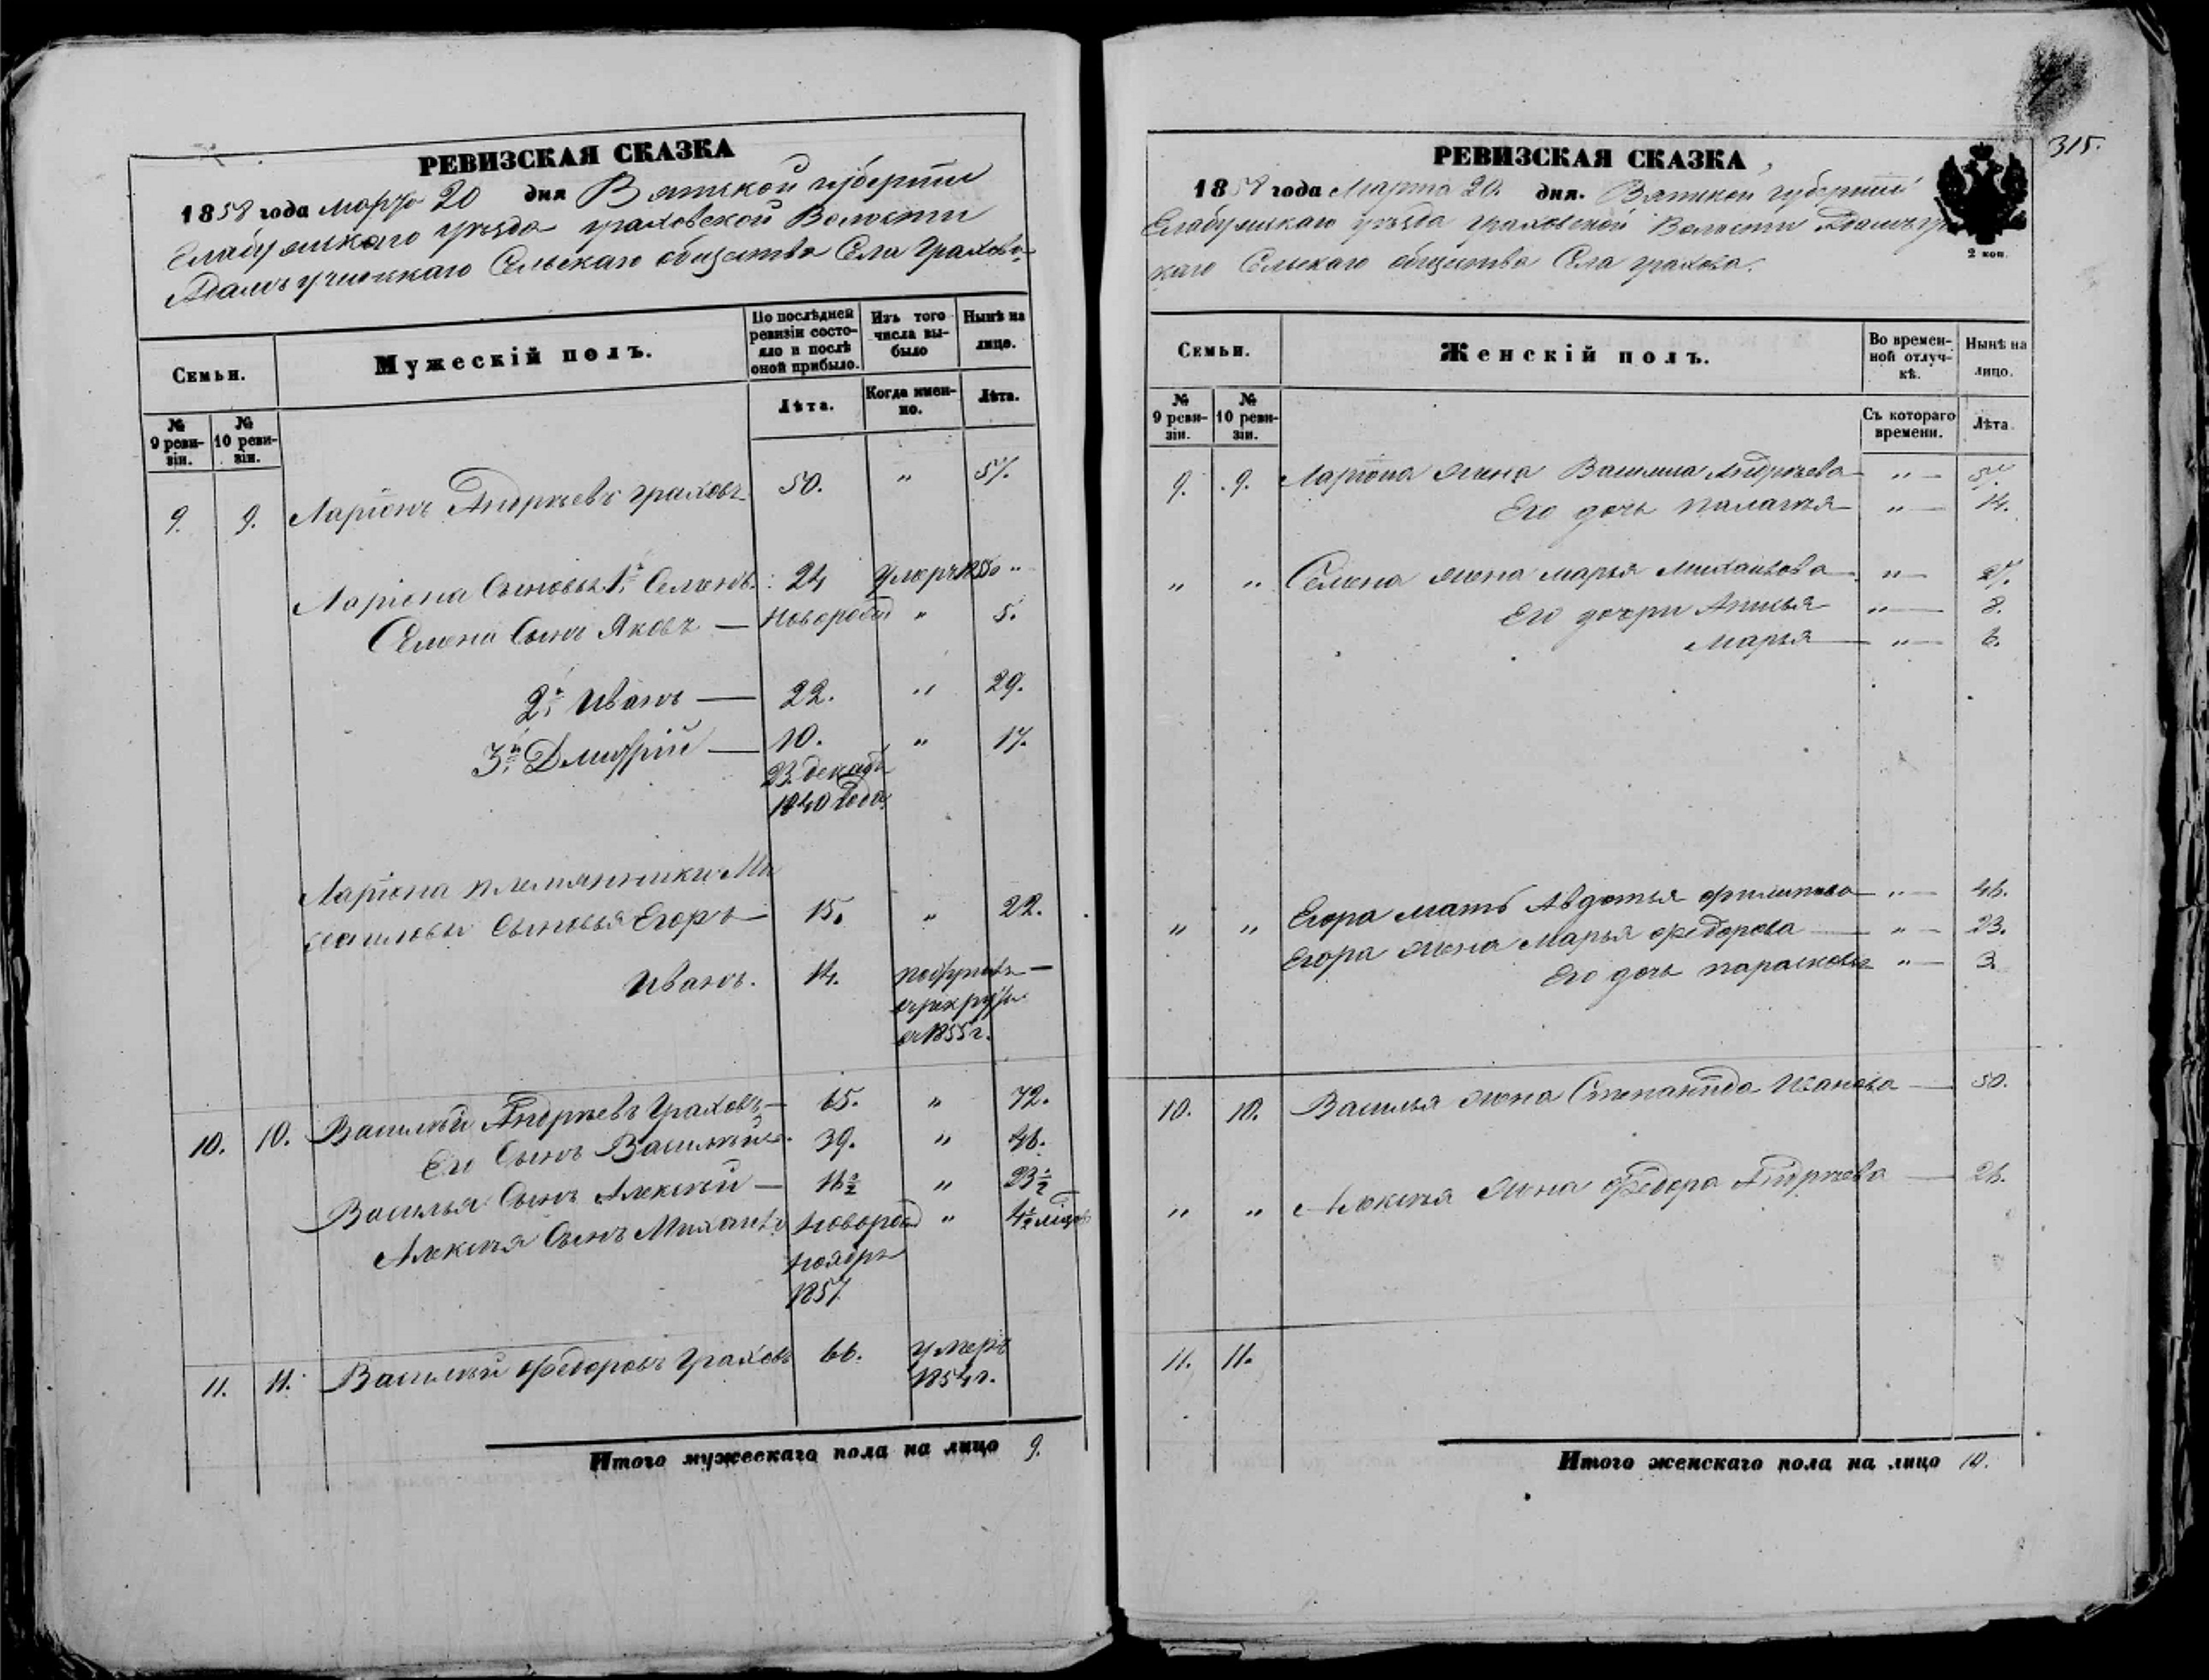 РЕВИЗСКАЯ СКАЗКА
1858 года марта 20 дня Вятской губернии
Елабужскаго уѣзда граховской Волости
Сельскаго общества Села Грахова
Семьи.
Мужескій полъ.
По послѣдней ревизіи состояло и послѣ оной прибыло.
Изъ того числа выбыло
Нынѣ на лицо.
№ 9 ревизіи.
№ 10 ревизіи.
Лѣта.
Когда именно.
Лѣта.
9. 9. Ларіонъ Андреевъ граховъ 50. " 57.
Ларіона Сыновья 1й Семенъ 24 умеръ 1850 "
Семена Сынъ Яковъ — новорожд " 5.
2й Иванъ — 22. " 29.
3й Дмитрій — 10. " 17.
23 декаб
1840 года
Ларіона племянники Ми
хайловы сыновья Егоръ 15. " 22.
Иванъ. 14.
въ рекруты
въ 1855 г.
10. 10. Василій Андреевъ Граховъ — 65. " 72.
Его Сынъ Василій 39. " 46.
Василья Сынъ Алексѣй — 16½ " 23½
Алексѣя Сынъ Михаилъ новорож " 4½ мѣся
ноябрь
1857
11. 11. Василий Федоровъ Граховъ 66. умеръ
1854 г.
Итого мужескаго пола на лицо 9.
315.
РЕВИЗСКАЯ СКАЗКА
1858 года Марта 20. дня. Вятской губерніи
Елабужскаго уѣзда граховской Волости
каго Сельскаго общества Села грахова.
2 коп.
Семьи.
Женскій полъ.
Во временной отлучкѣ.
Нынѣ на лицо.
№ 9 ревизіи.
№ 10 ревизіи.
Съ котораго времени.
Лѣта.
9. 9. Ларіона жена Василиса Андреева " — 57.
Его дочь палагѣя " — 14.
" " Семена жена марья михайлова " — 27.
Его дочери " — 8.
Марья " — 6.
" " Егора мать Авдотья филипова " — 46.
Егора жена Марья федорова " — 23.
Его дочь парасковья " — 3.
10. 10. Василья жена Степанида Иванова — 50.
" " Алексѣя жена Федора Андреева — 26.
11. 11.
Итого женскаго пола на лицо 10.